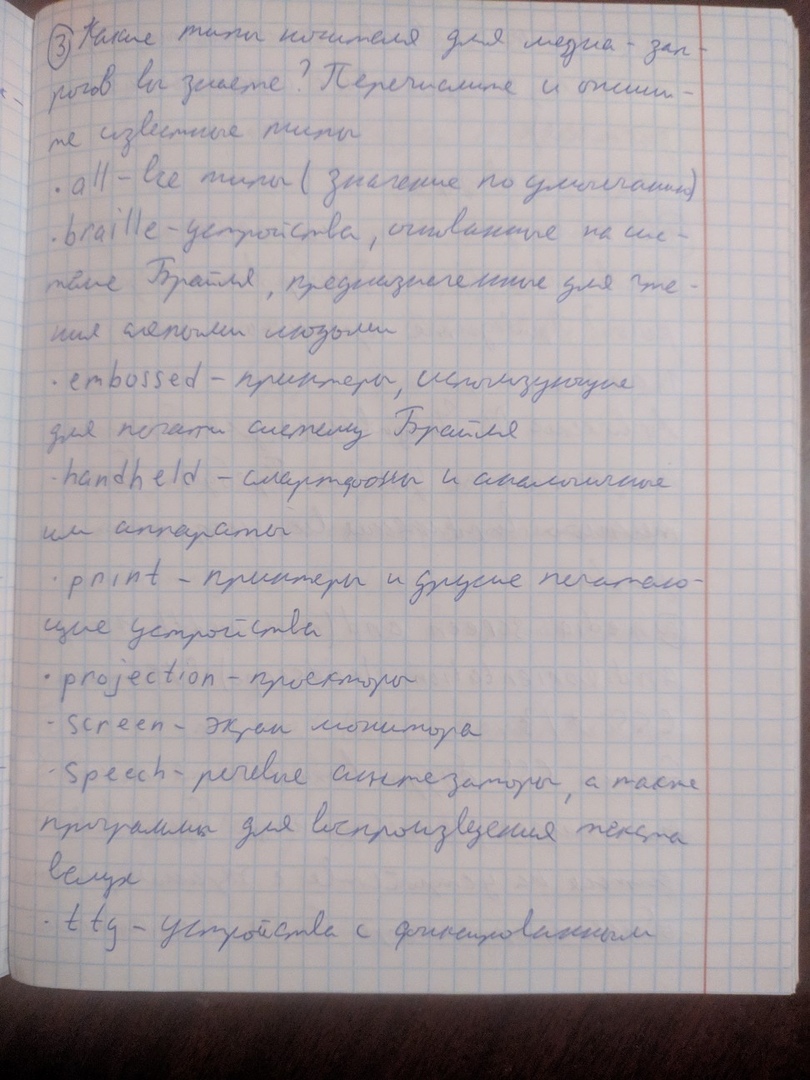 ③ Какие типы носителя для медиа-зап-
росов вы знаете? Перечислите и опиши-
те известные типы
· all – все типы (значение по умолчанию)
· braille – устройства, основанные на сис-
теме Брайля, предназначенные для чте-
ния слепыми людьми
· embossed – принтеры, использующие
для печати систему Брайля
· handheld – смартфоны и аналогичные
им аппараты
· print – принтеры и другие печатаю-
щие устройства
· projection – проекторы
· screen – экран монитора
· speech – речевые синтезаторы, а также
программы для воспроизведения текста
вслух
· tty – устройства с фиксированным